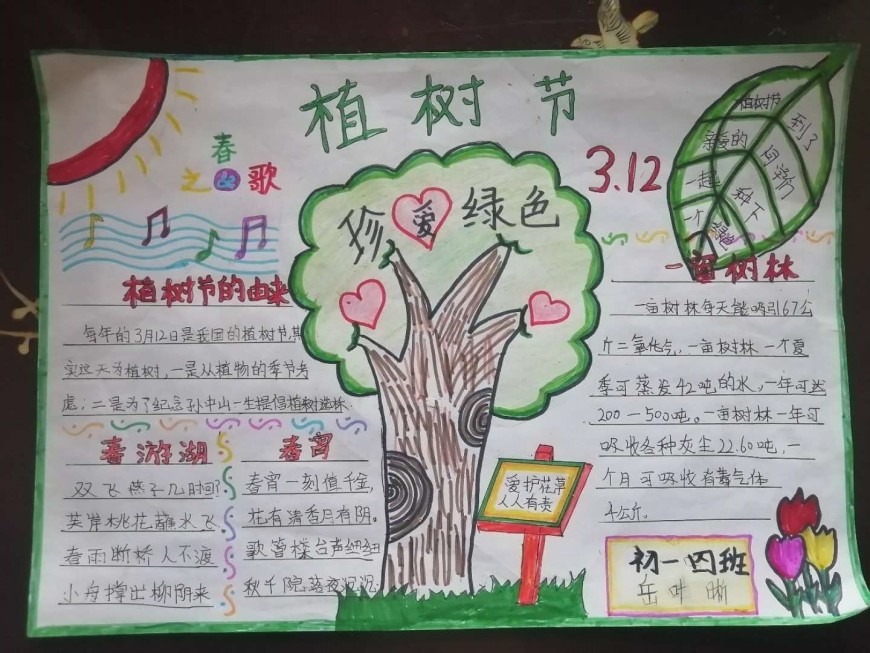 植树节
3.12
春
之の歌
植树节
到了
亲爱的
同学们
一起
种下
一个
绿色
珍爱绿色
植树节的由来
每年的3月12日是我国的植树节,其
实这天为植树,一是从植物的季节考
虑;二是为了纪念孙中山一生提倡植树造林.
春游湖
双飞燕子几时回?
夹岸桃花蘸水飞
春雨断桥人不渡
小舟撑出柳阴来
春宵
春宵一刻值千金,
花有清香月有阴.
歌管楼台声细细
秋千院落夜沉沉
爱护花草
人人有责
一亩树林
一亩树林每天能吸引67公
斤二氧化气,一亩树林一个夏
季可蒸发42吨的水,一年可达
200—500吨。一亩树林一年可
吸收各种灰尘22.60吨,一
个月可吸收有毒气体
4公斤。
初一四班
岳叶晰